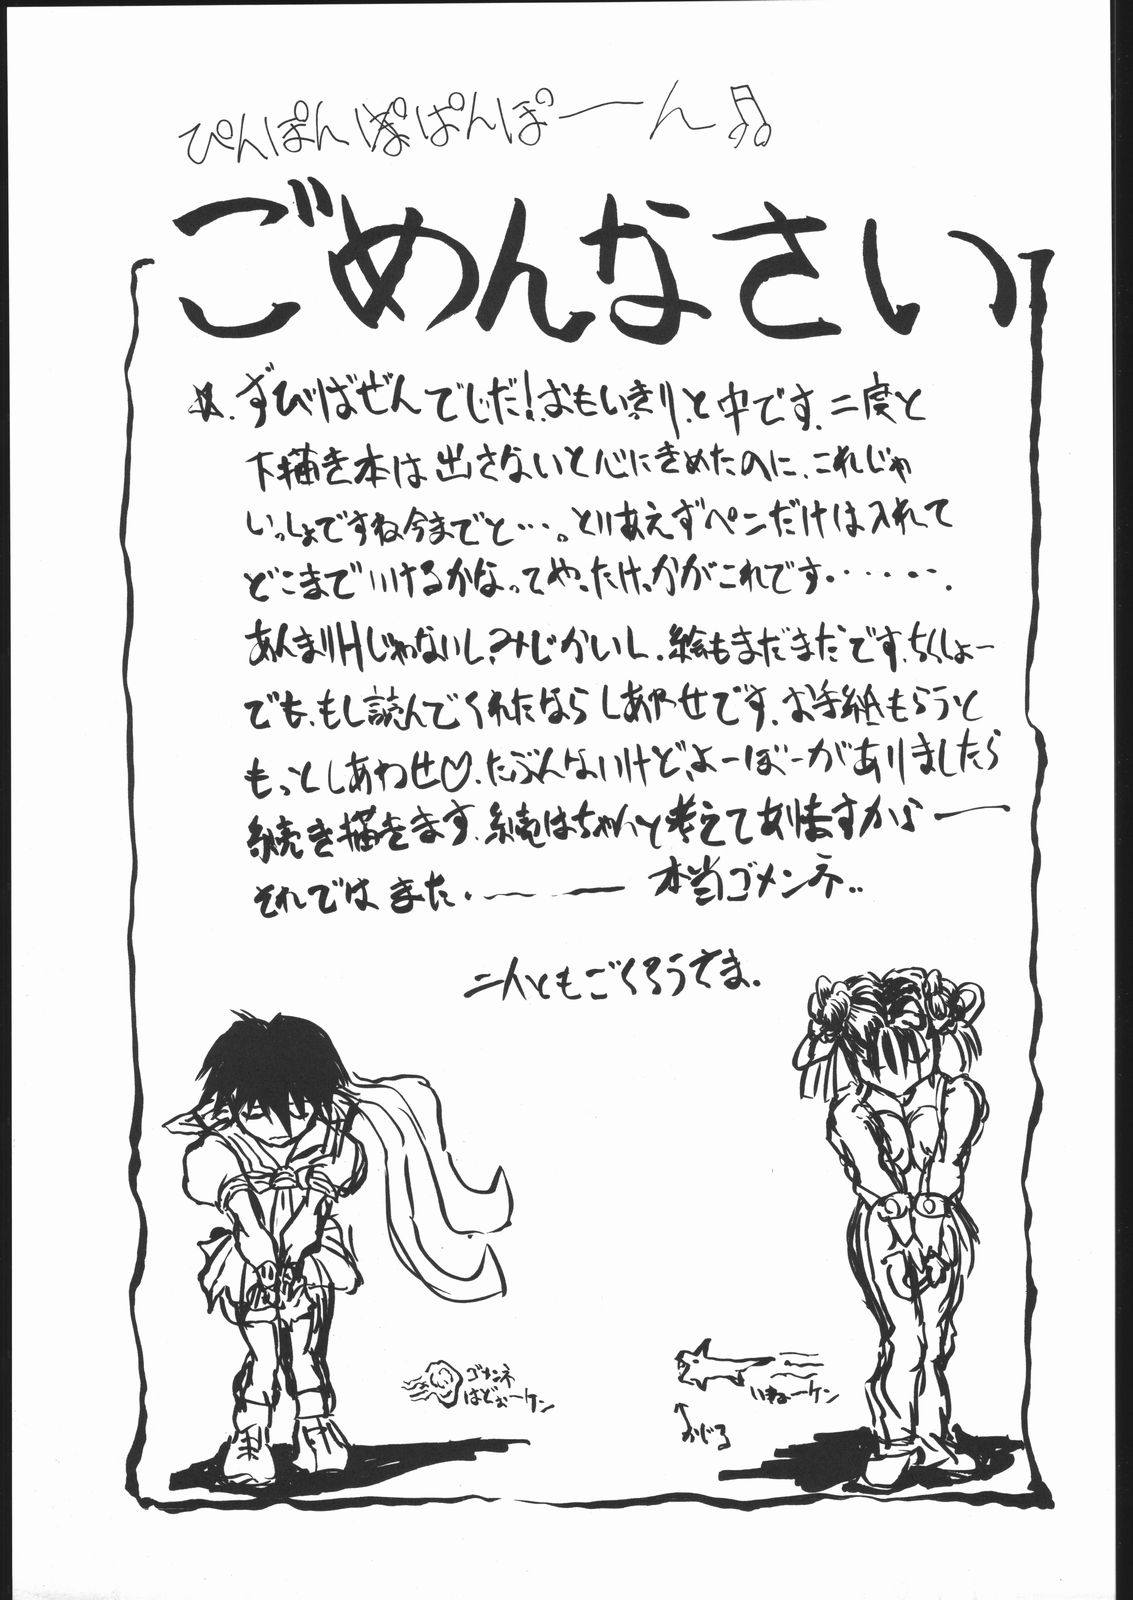 ぴんぽんぱぱんぽーん♫
ごめんなさい
☆.ずびばぜんでじだ!おもいっきり、と中です.二度と
下描き本は出さないと心にきめたのに、これじゃ
いっしょですね今までと・・・。とりあえずペンだけは入れて
どこまでいけるかなってやったけっかがこれです・・・・・・・.
あんまりHじゃないし、みじかいし、絵もまだまだです、ちくしょー
でも、もし読んでくれたなら しあわせです、お手紙もらうと
もっとしあわせ♡、たぶんないけど、よーぼーがありましたら
続き描きます、続はちゃんと考えてありますから——
それでは また・—— 本当ゴメンネ..
二人ともごくろうさま.
ゴメンネ
はどぉーケン
いきょーケン
↑おじる